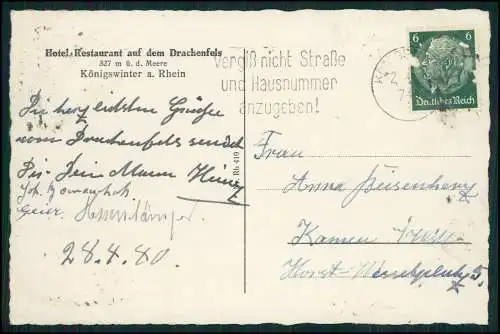 Hotel-Restaurant auf dem Drachenfels
327 m ü. d. Meere
Königswinter a. Rhein
Vergiß nicht Straße
und Hausnummer
anzugeben!
6 6
Deutsches Reich
Die herzlichsten Grüße
vom Drachenfels sendet
Dir Dein Mann Heinz
28.4.40
Rh 419
Frau
Anna
Kamen
Horst-Wesselplatz 5.